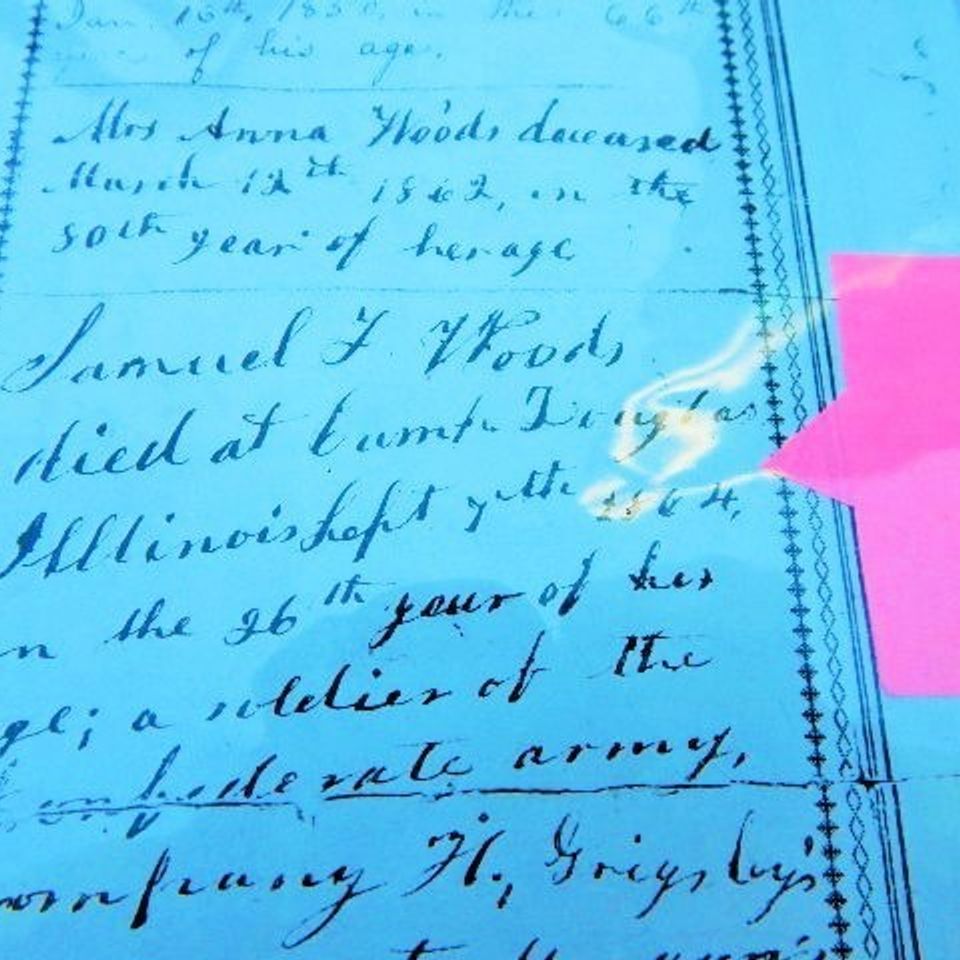 Jan. 16th, 1850, in the 66th
years of his age.
Mrs Anna Woods deceased
March 12th 1862, in the
50th year of her age
Samuel F Woods
died at Camp Douglas
Illinois Sept 7th 1864,
in the 26th year of his
age; a soldier of the
Confederate army,
Company H., Grigsby's